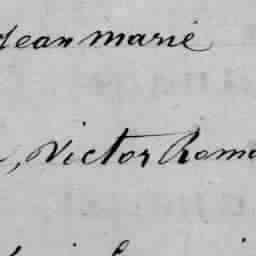 Jean Marie
, Victor Roma